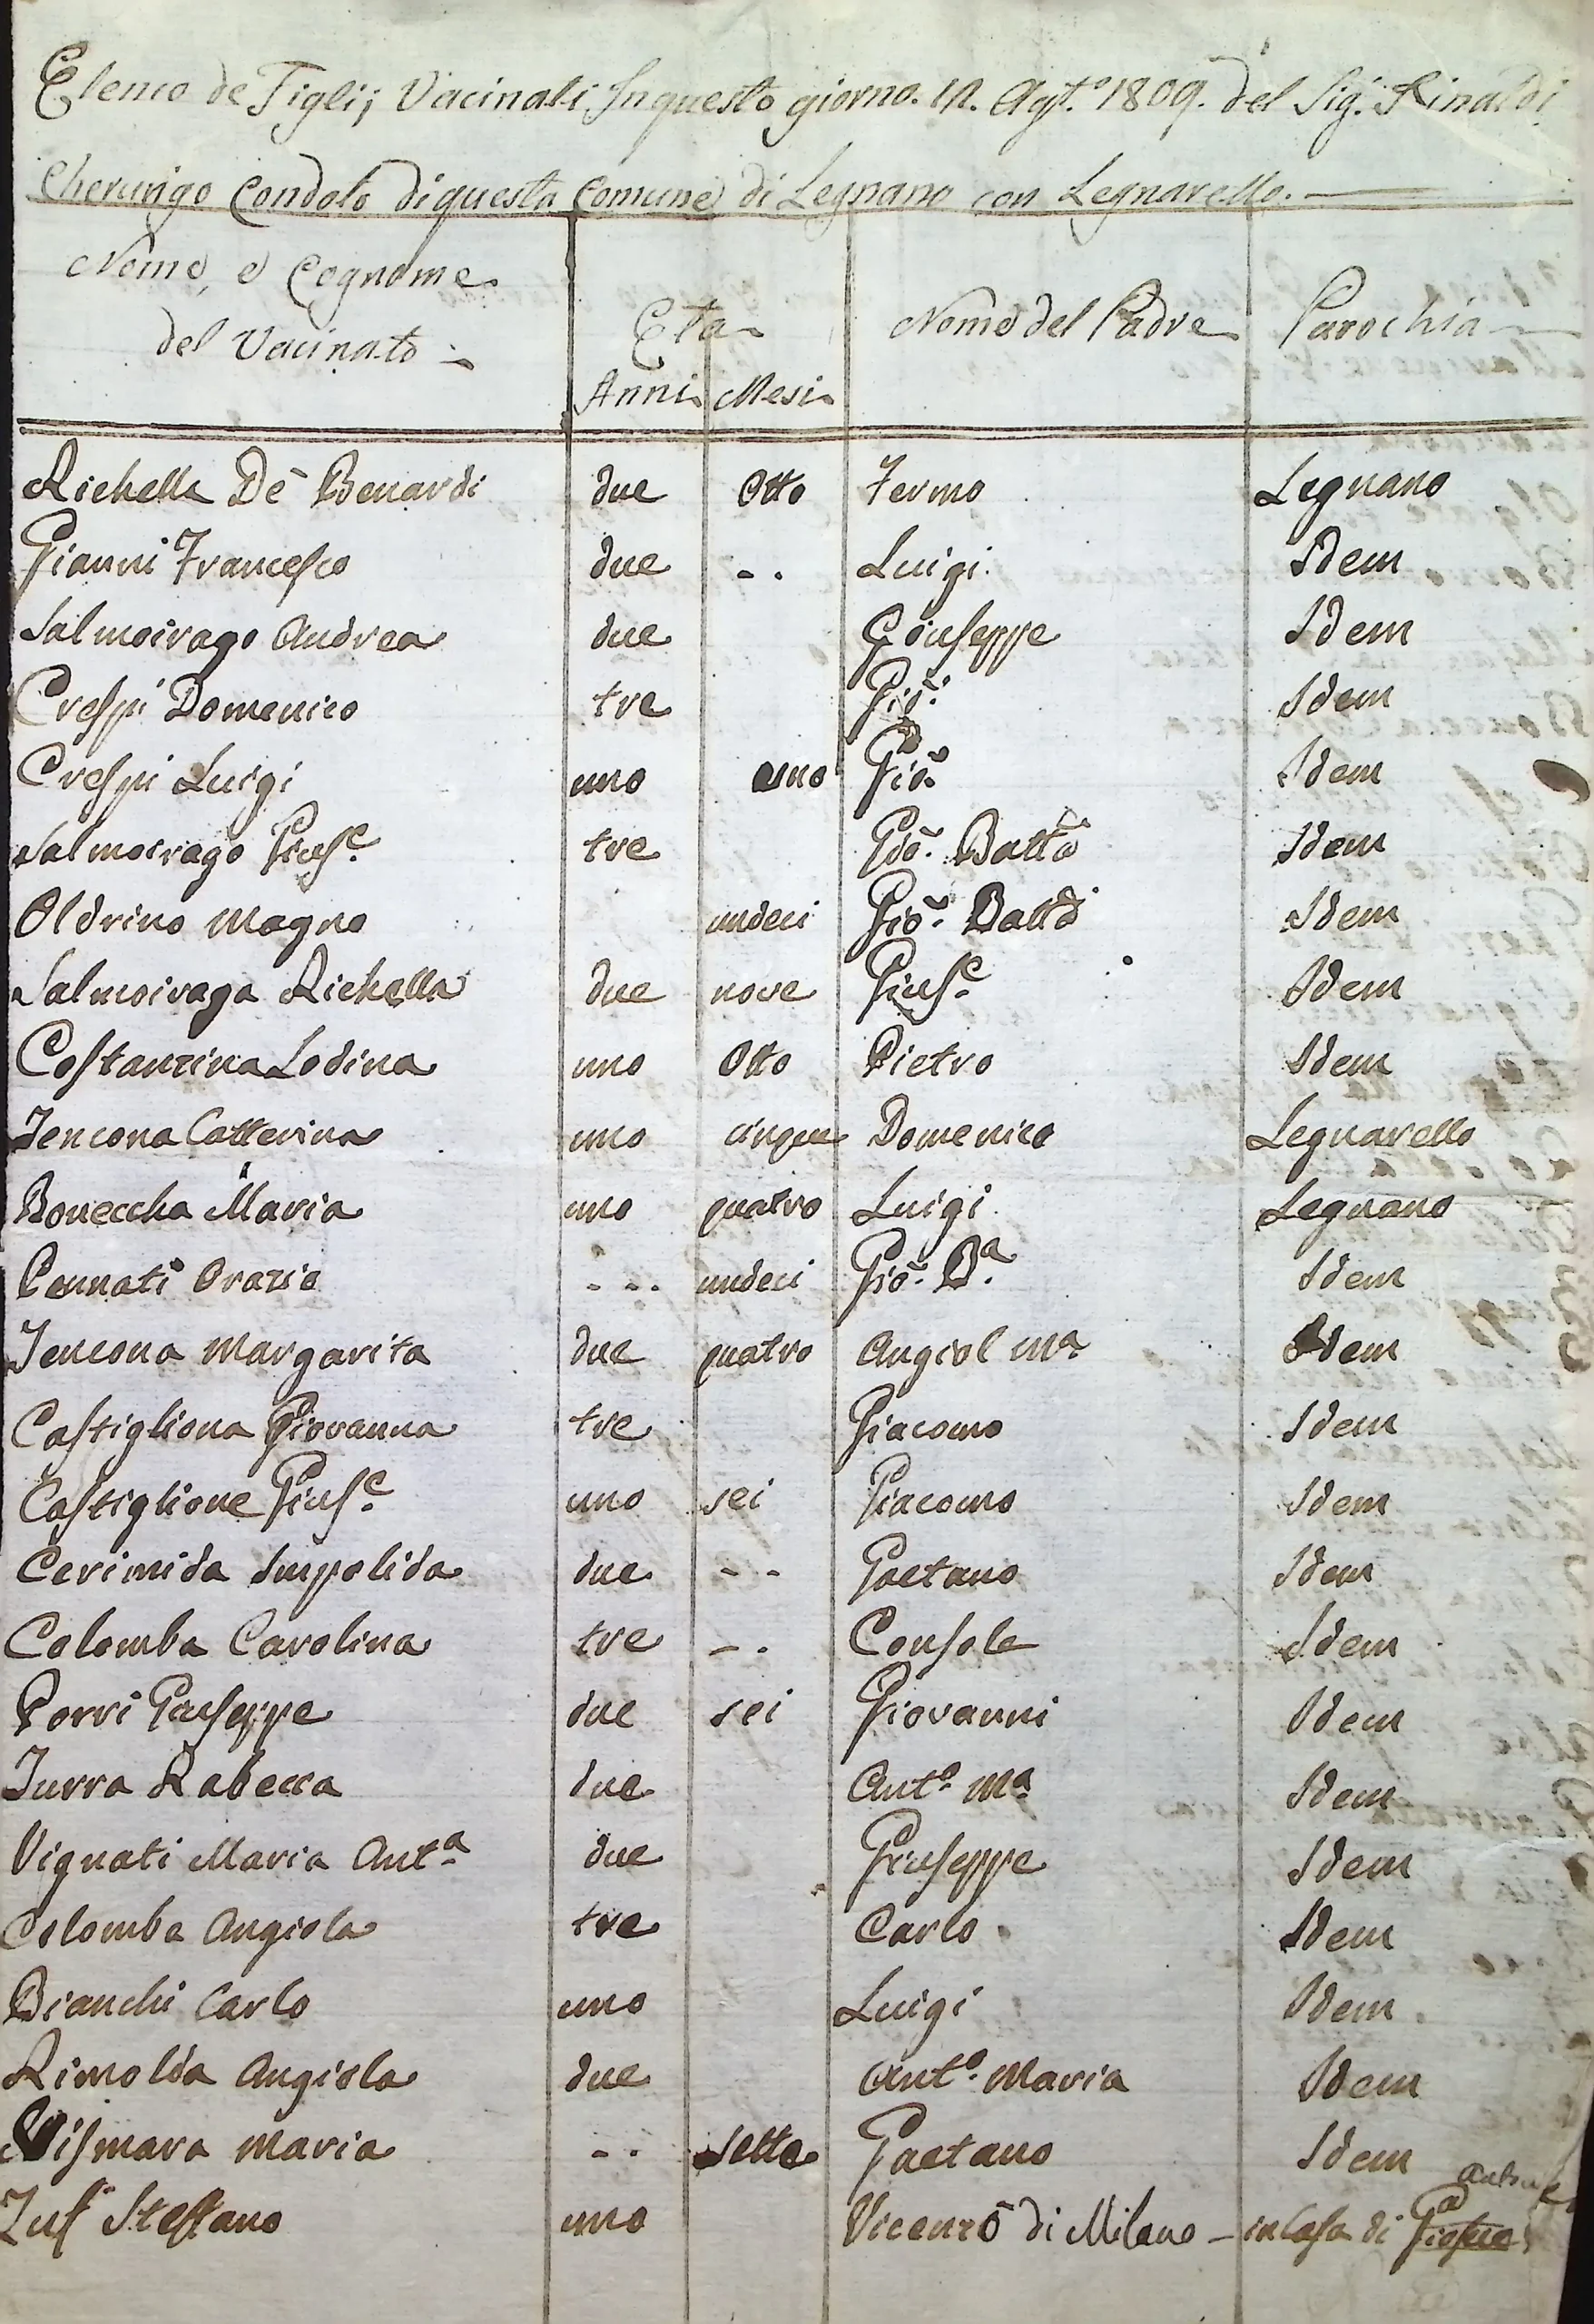 Elenco de Figlij Vacinati Inquesto giorno. 12. Agt.º 1809. del Sig.r Rinaldi
Cherurigo Condoto diquesta Comune di Legnano con Legnarello.
Nome, e Cognome
del Vacinato
Eta
Nome del Padre
Parochia
Anni Mesi
Richella De Benardi due Otto Fermo Legnano
Gianni Francesco due - . Luigi Idem
Salmoirago Andrea due Gioiuseppe Idem
Crespi Domenico tre Gio. Idem
Crespi Luigi uno uno Gio. Idem
Salmoirago Gius.e tre Gio. Batta Idem
Oldrino Magno undeci Gio. Batta Idem
Salmoiraga Richella due nove Gius.e Idem
Costanzina Lodina uno Otto Pietro Idem
Tencona Catterina uno cinque Domenico Legnarello
Boneccha Maria uno quatro Luigi Legnano
Pennati Orazio - - . undeci Gio. B.a Idem
Tencona Margarita due quatro Angiol M.a Idem
Castigliona Giovanna tre Giacomo Idem
Castiglione Gius.e uno sei Giacomo Idem
Cerimida Impolida due - - Gaetano Idem
Colomba Carolina tre - . Console Idem
Porri Giuseppe due sei Giovanni Idem
Turra Rabecca due Ant.º M.a Idem
Vignati Maria Ant.a due Giuseppe Idem
Colomba Angiola tre Carlo Idem
Bianchi Carlo uno Luigi Idem
Rimolda Angiola due Ant.º Maria Idem
Vismara Maria - . sette Gaetano Idem
Steffano uno Vicenzo di Milano - in Casa di